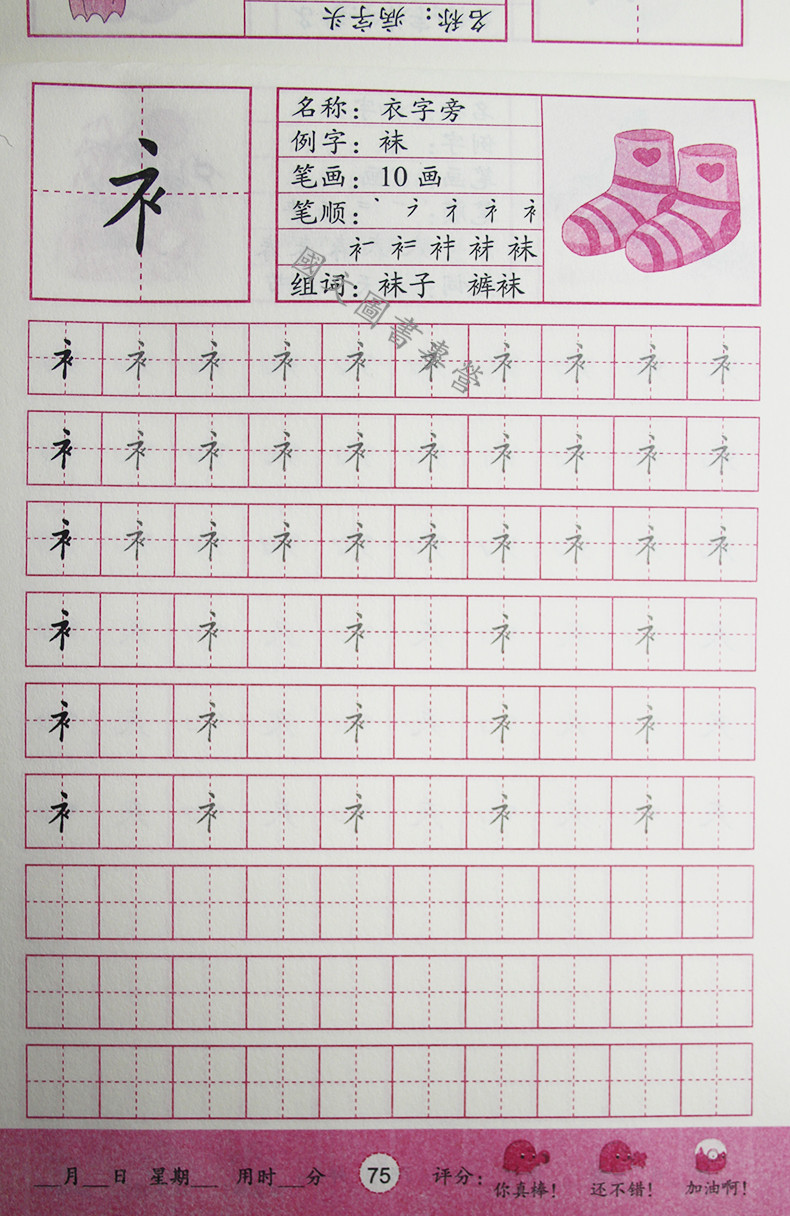 名称：病字头
衤
名称：衣字旁
例字：袜
笔画：10 画
笔顺：丶 ㇇ 礻 衤
袜
组词：袜子 裤袜
國文圖書專營
衤 衤 衤 衤 衤 衤 衤 衤 衤 衤
衤 衤 衤 衤 衤 衤 衤 衤 衤 衤
衤 衤 衤 衤 衤 衤 衤 衤 衤 衤
衤 衤 衤 衤 衤
衤 衤 衤 衤 衤
衤 衤 衤 衤 衤
__月__日 星期__ 用时__分 75 评分： 你真棒！ 还不错！ 加油啊！